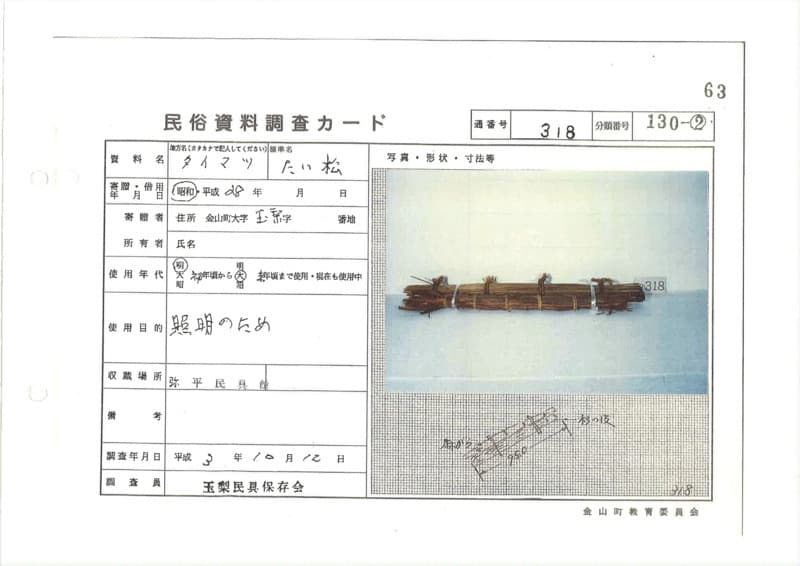 63
民俗資料調査カード
通番号 318 分類番号 130-②
資料名 地方名(カタカナで記入してください) タイマツ 標準名 たい松
写真・形状・寸法等
寄贈・借用年月日 昭和・平成 28年 月 日
寄贈者 住所 金山町大字 玉梨 字 番地
所有者 氏名
使用年代 明大昭 年頃から 明大昭 年頃まで使用・現在も使用中
使用目的 照明のため
収蔵場所 弥平民具館
備考
調査年月日 平成 3年 10月 12日
調査員 玉梨民具保存会
318
麻がら
95.0
杉の皮
318
金山町教育委員会